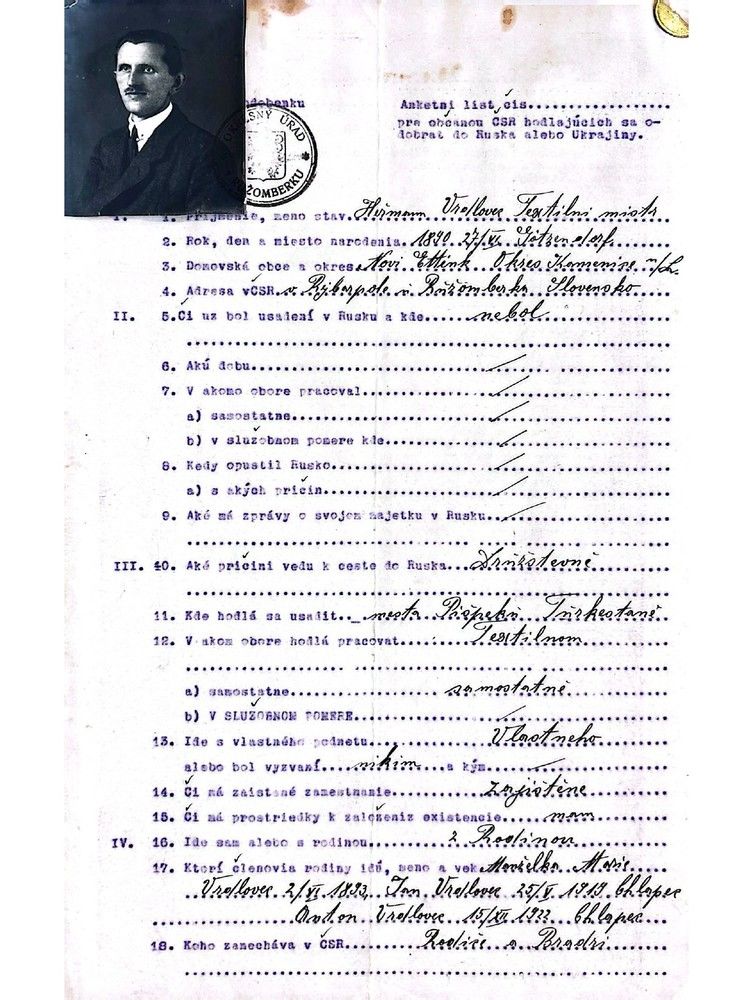 OKRESNÝ ÚRAD
RUŽOMBERKU
Anketní list čís...................
pre občanou CSR hodlajúcich sa o-
dobrat do Ruska alebo Ukrajiny.
I. 1. Prijmenie, meno stav. Heřmann Vrdlovec Textilni mistr
2. Rok, den a miesto narodenia. 1890 27/VI Götzendorf.
3. Domovská obce a okres. Novi Okres Kamenice n/L.
4. Adresa vČSR. v Rýberpole u Růžomberka Slovensko
II. 5. Či uz bol usadení v Rusku a kde.... nebol
6. Akú dobu
7. V akomo obore pracoval
a) samostatne
b) v služobnom pomere kde
8. Kedy opustil Rusko
a) s akých pričin
9. Aké má zprávy o svojom majetku v Rusku
III. 10. Aké pričini vedu k ceste do Ruska... Drůžstevné
11. Kde hodlá sa usadit... mesta Pišpeků Tůrkestaně
12. V akom obore hodlá pracovat... Textilnom
a) samostatne... samostatně
b) V SLUŽOBNOM POMERE
13. Ide s vlastného podnetu... Vlastneho
alebo bol vyzvaní... nikim... a kým
14. Či má zaistené zamestnanie... zajištěne
15. Či má prostriedky k založeniz existencie... mam
IV. 16. Ide sam alebo s rodinou... z Rodinou
17. Ktorí členovia rodiny idú, meno a vek Manželka Marie
Vrdlovec 2/VI 1893, Jan Vrdlovec 25/V 1919 Chlapec
Anton Vrdlovec 15/XII 1922 Chlapec
18. Koho zanecháva v ČSR... Rodiče a Bradri